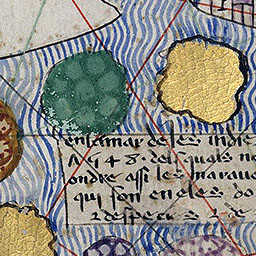 en la mar de les indies
7548 · dels quals no
ondre assi les marave
qui son en eles do
e despecies e de